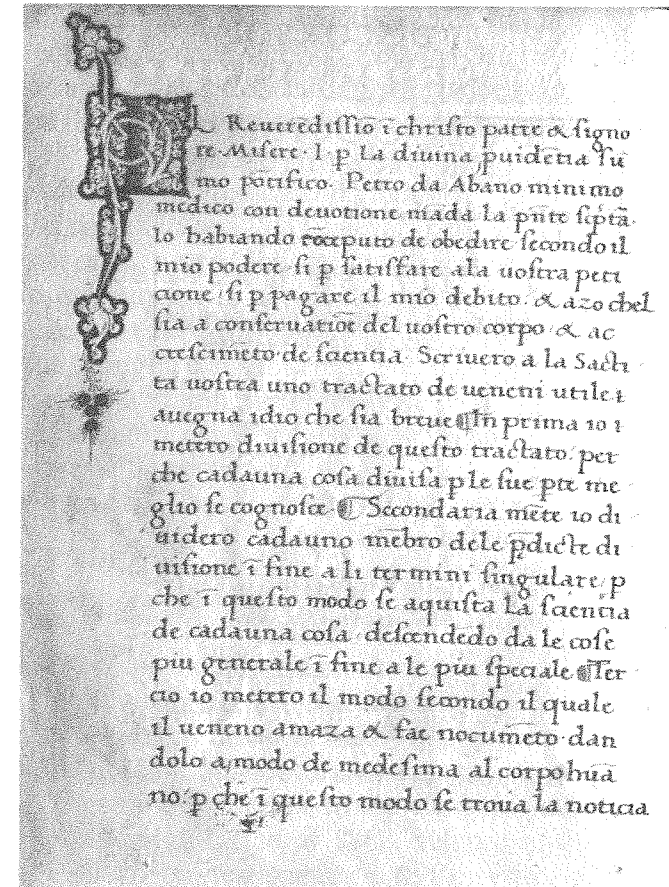 L Reueredissio ī christo patre & signo
re. Misere. I. p La diuina puidētia su
mo pōtifico. Petro da Abano minimo
medico con deuotione māda la pñte scptā.
Io habiando cōceputo de obedire secondo il
mio podere si p satisfare ala uostra peti
cione si p pagare il mio debito. & azo chel
sia a conseruatiōe del uostro corpo & ac
crescimēto de scientia. Scriuero a la Sacti
ta uostra uno tractato de ueneni utile i
auegna idio che sia breue ¶In prima io i
metero diuisione de questo tractato. per
che cadauna cosa diuisa p le sue pte me
glio se cognosce. ¶ Secondaria mēte io di
uidero cadauno mēbro dele p̄dicte di
uisione ī fine a li termini singulare. p
che ī questo modo se aquista La scientia
de cadauna cosa descendēdo da le cose
piu generale ī fine a le piu speciale ¶Ter
cio io metero il modo secondo il quale
il ueneno amaza & fae nocumēto. dan
dolo a modo de medesima al corpo huā
no. p che ī questo modo se troua la noticia